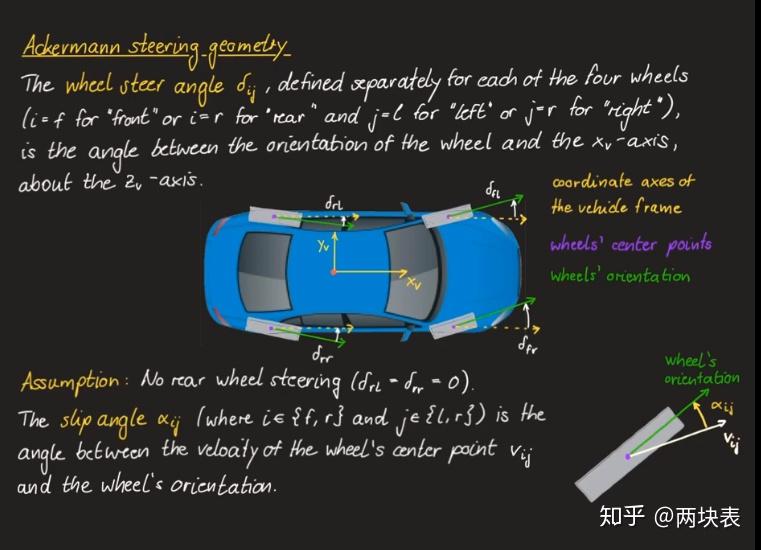 Ackermann steering geometry
The wheel steer angle δij, defined separately for each of the four wheels
(i=f for "front" or i=r for "rear" and j=l for "left" or j=r for "right"),
is the angle between the orientation of the wheel and the xv-axis,
about the zv-axis.
δrl
δfl
yv
xv
δrr
δfr
coordinate axes of
the vehicle frame
wheels' center points
wheels' orientation
Assumption: No rear wheel steering (δrl = δrr = 0).
The slip angle αij (where i∈{f,r} and j∈{l,r}) is the
angle between the velocity of the wheel's center point vij
and the wheel's orientation.
wheel's
orientation
αij
vij
知乎 @两块表